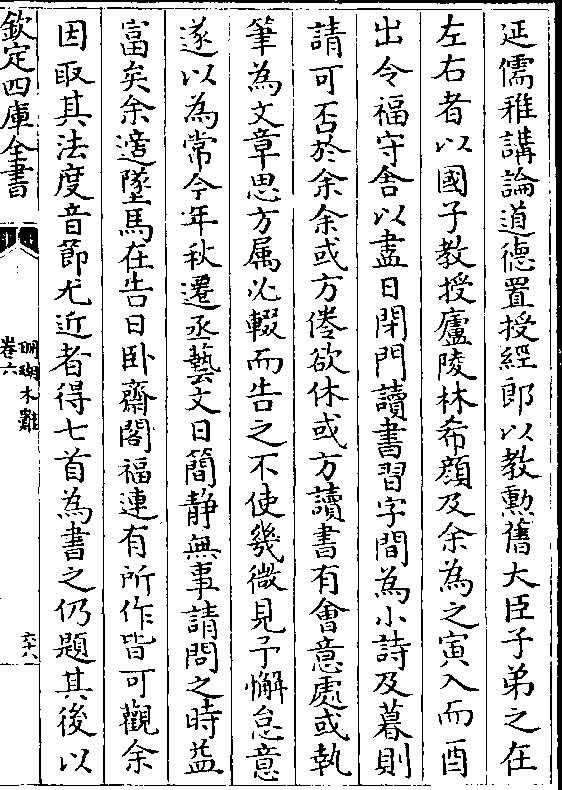 延儒雅講論道德置授經郎以教勲舊大臣子弟之在
左右者以國子教授廬陵林希顔及余為之寅入而酉
出令福守舎以盡日閉門讀書習字間為小詩及暮則
請可否於余余或方倦欲休或方讀書有會意處或執
筆為文章思方属必輟而告之不使幾微見予懈怠意
遂以為常今年秋遷丞藝文日簡静無事請問之時益
富矣余適墜馬在告日卧齋閣福連有所作皆可觀余
因取其法度音節尤近者得七首為書之仍題其後以
欽定四庫全書
珊瑚木難
卷六
六十八